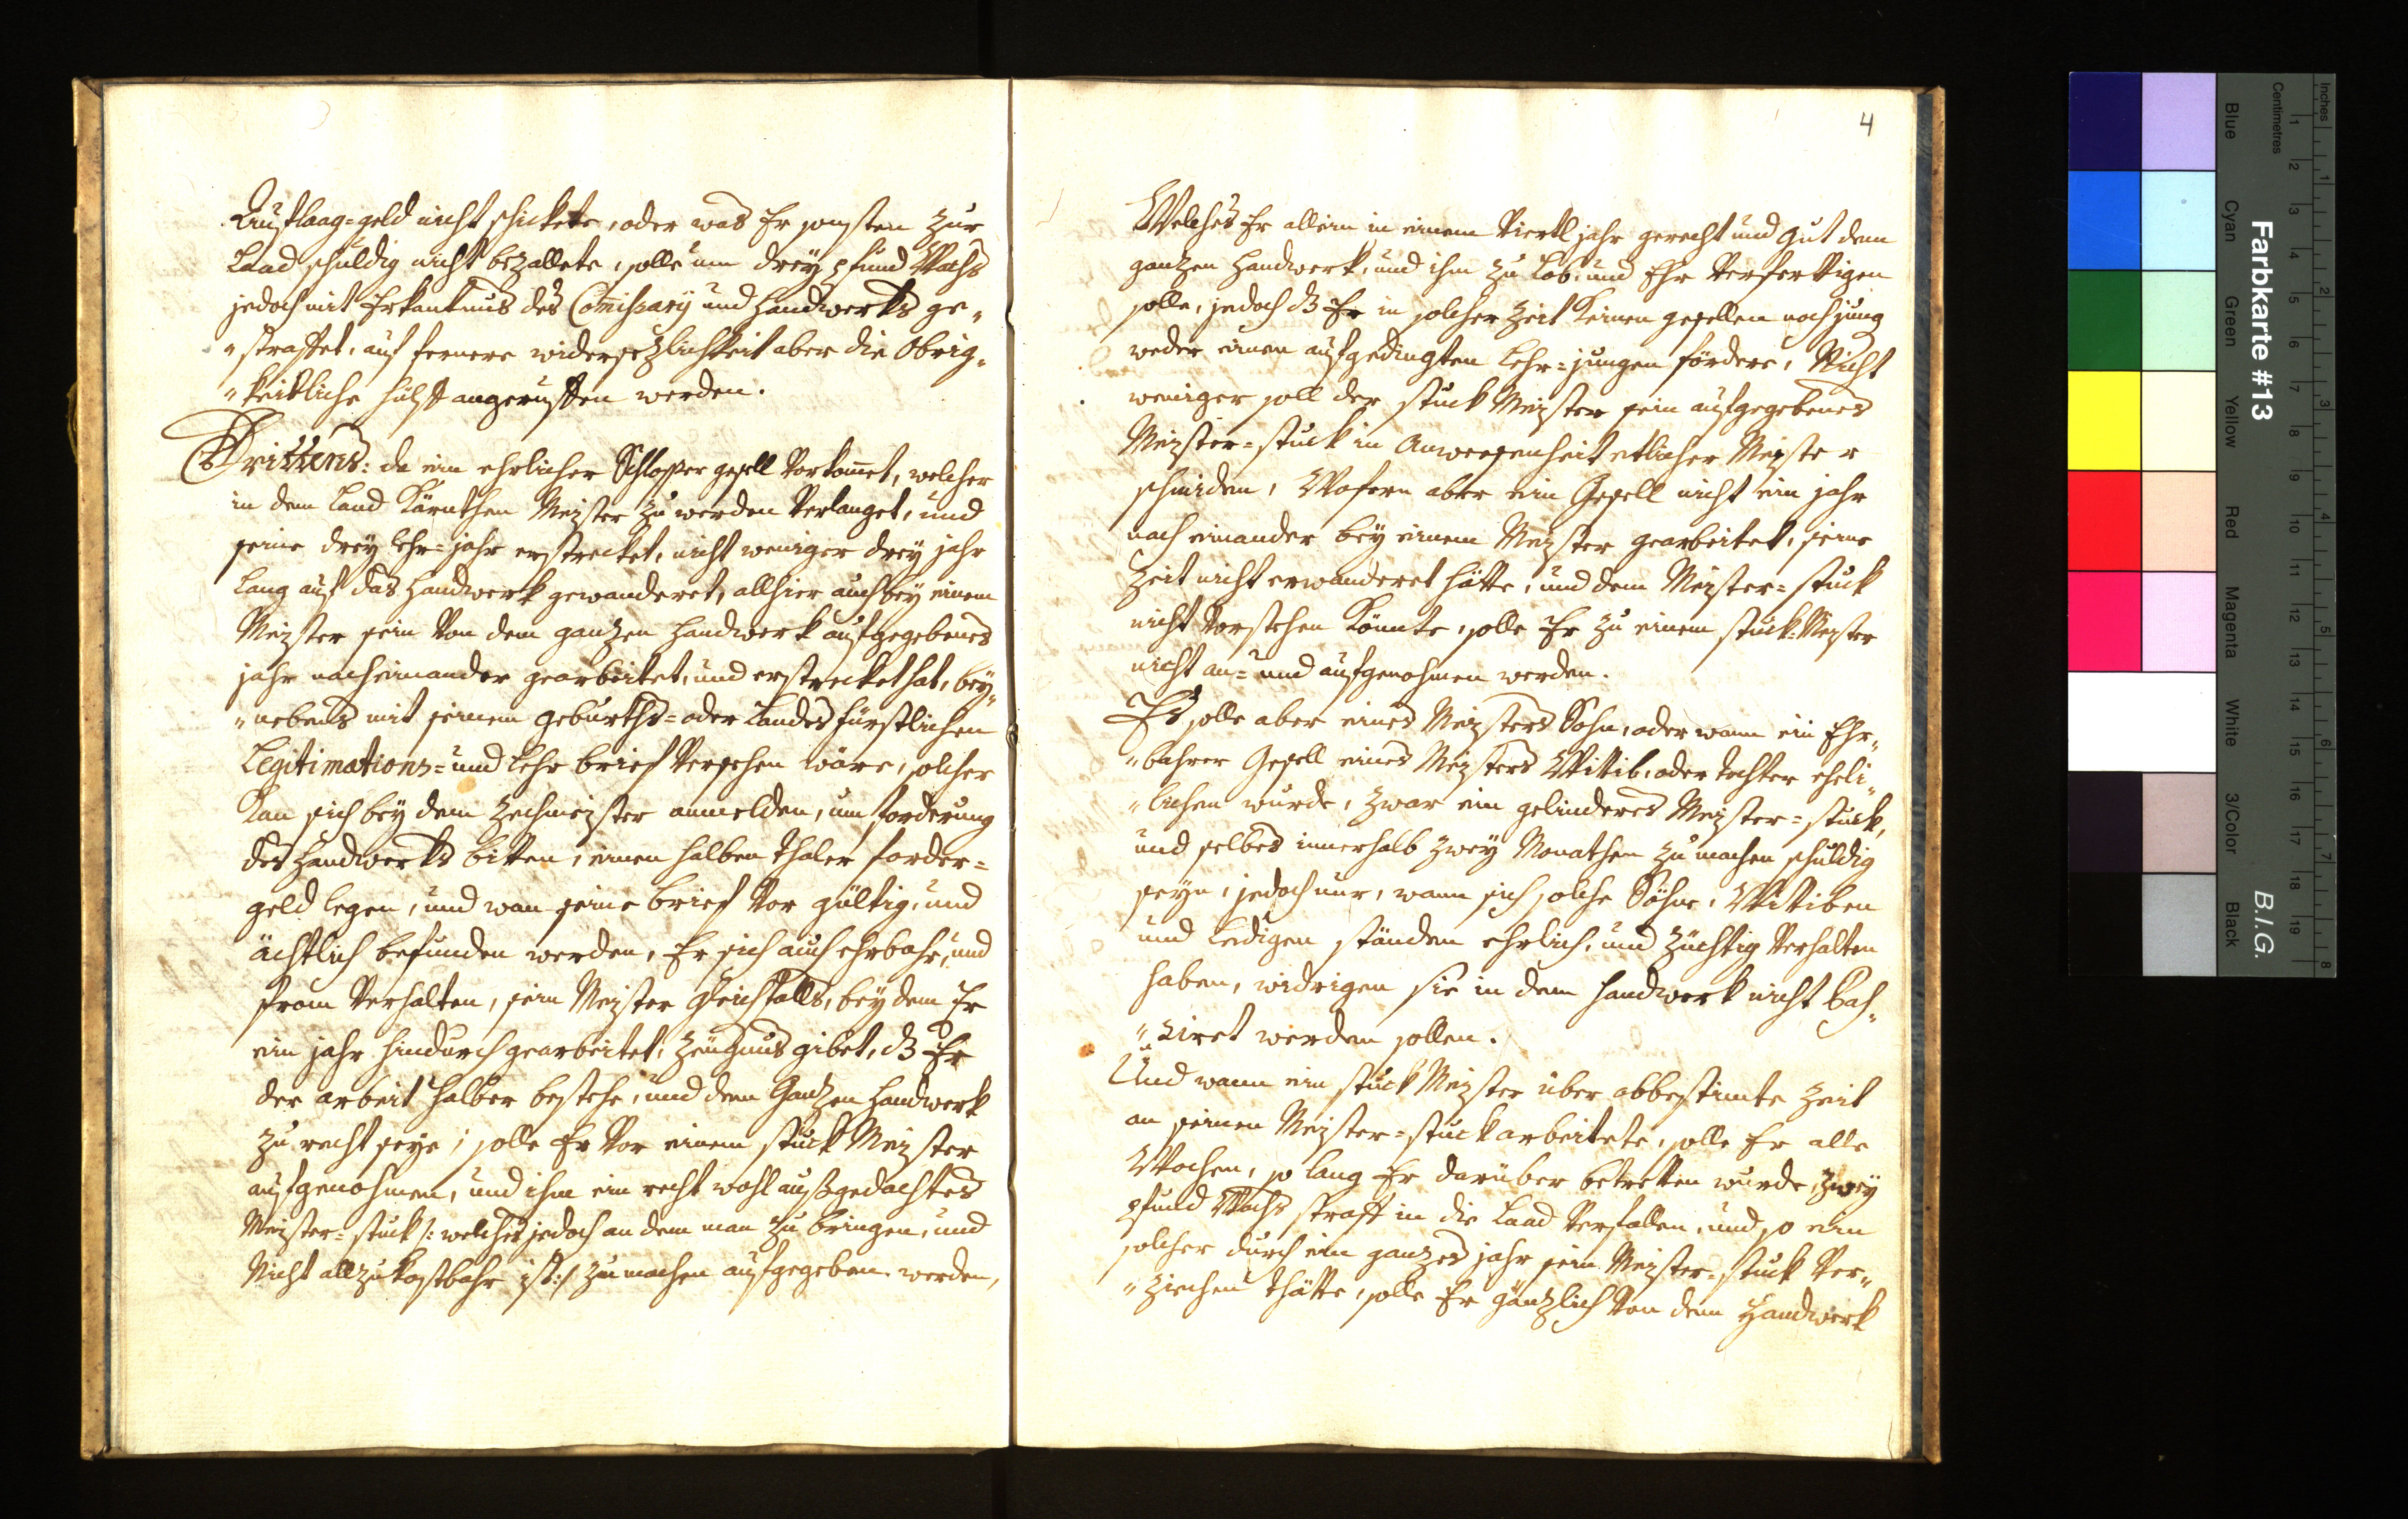 Auflaag=geld nicht schickete, oder was Er sonsten zur
Laad schuldig nicht bezallete, solle um dreÿ pfund Wachs
jedoch mit Erkantnus des Comißarÿ und Handwerks ge„
„straffet, auf fernere widersezlichkeit aber die Obrig„
„keitliche hülff angeruffen werden.
Drittens: da ein ehrlicher Schlosser gesell Vorkomet, welcher
in dem Land Kärnthen Meister zu werden Verlanget, und
seine dreÿ lehr=jahr erstrecket, nicht weniger dreÿ jahr
lang auf das Handwerk gewanderet, allhier auch beÿ einem
Meister sein Von dem ganzen Handwerk aufgegebenes
jahr nacheinander gearbeitet, und erstrecket hat, beÿ„
„nebens mit seinem geburths= oder Landesfürstlichen
Legitimations= und lehr brief Versehen wäre, solcher
Kan sich beÿ dem Zechmeister anmelden, um forderung
des Handwerks bitten, einen halben thaler forder=
geld legen, und wan seine brief Vor gültig, und
ächtlich befunden werden, Er sich auch ehrbahr, und
from Verhalten, sein Meister gleichfalls, beÿ dem Er
ein jahr hindurch gearbeitet, Zeugnus gibet, dz Er
der arbeit halber bestehe, und dem Ganzen Handwerk
zu recht seÿe; solle Er Vor einem stuck Meister
aufgenohmen, und ihm ein recht wohl außgedachtes
Meister=stuck /: welches jedoch an dem man zu bringen, und
Nicht allzukostbahr ist :/ zu machen aufgegeben werden,
4
Welches Er allein in einem Viertl jahr gerecht und gut dem
ganzen Handwerk, und ihm zu Lob, und Ehr Verferttigen
solle, jedoch dz Er in solcher Zeit Keinen gesellen noch jung
weder einen aufgedingten Lehr=jungen fördere, Nicht
weniger soll der stuck Meister sein aufgegebenes
Meister=stuck in Anwesenheit etlicher Meister
schmiden, Wofern aber ein Gesell nicht ein jahr
nach einander beÿ einem Meister gearbeitet, seine
Zeit nicht erwanderet hätte, und dem Meister=stuck
nicht Vorstehen Könnte, solle Er zu einem stuck=Meister
nicht an= und aufgenohmen werden.
Es solle aber eines Meisters Sohn, oder wann ein Ehr„
„bahrer Gesell eines Meisters Wittib, oder tochter eheli„
„chen wurde, zwar ein gelinderes Meister=stuck,
und selbes innerhalb zweÿ Monathen zu machen schuldig
seÿn, jedoch nur, wann sich solche Söhne, Wittiben
und Ledigen ständen ehrlich, und züchtig Verhalten
haben, widrigen sie in dem Handwerk nicht Pas„
„siret werden sollen.
Und wann ein stuck Meister über abbestimte Zeit
an seinen Meister=stuck arbeitete, solle Er alle
Wochen, so lang Er darüber betretten wurde, zweÿ
pfund Wachs straff in die Laad Verfallen, und so ein
solcher durch ein ganzes jahr sein Meister=stuck Ver„
„ziechen thätte, solle Er gänzlich Von dem Handwerk
Farbkarte #13
B.I.G.
Inches
Centimetres
Blue Cyan Green Yellow Red Magenta White 3/Color Black
1 2 3 4 5 6 7 8 9 10 11 12 13 14 15 16 17 18 19
1 2 3 4 5 6 7 8